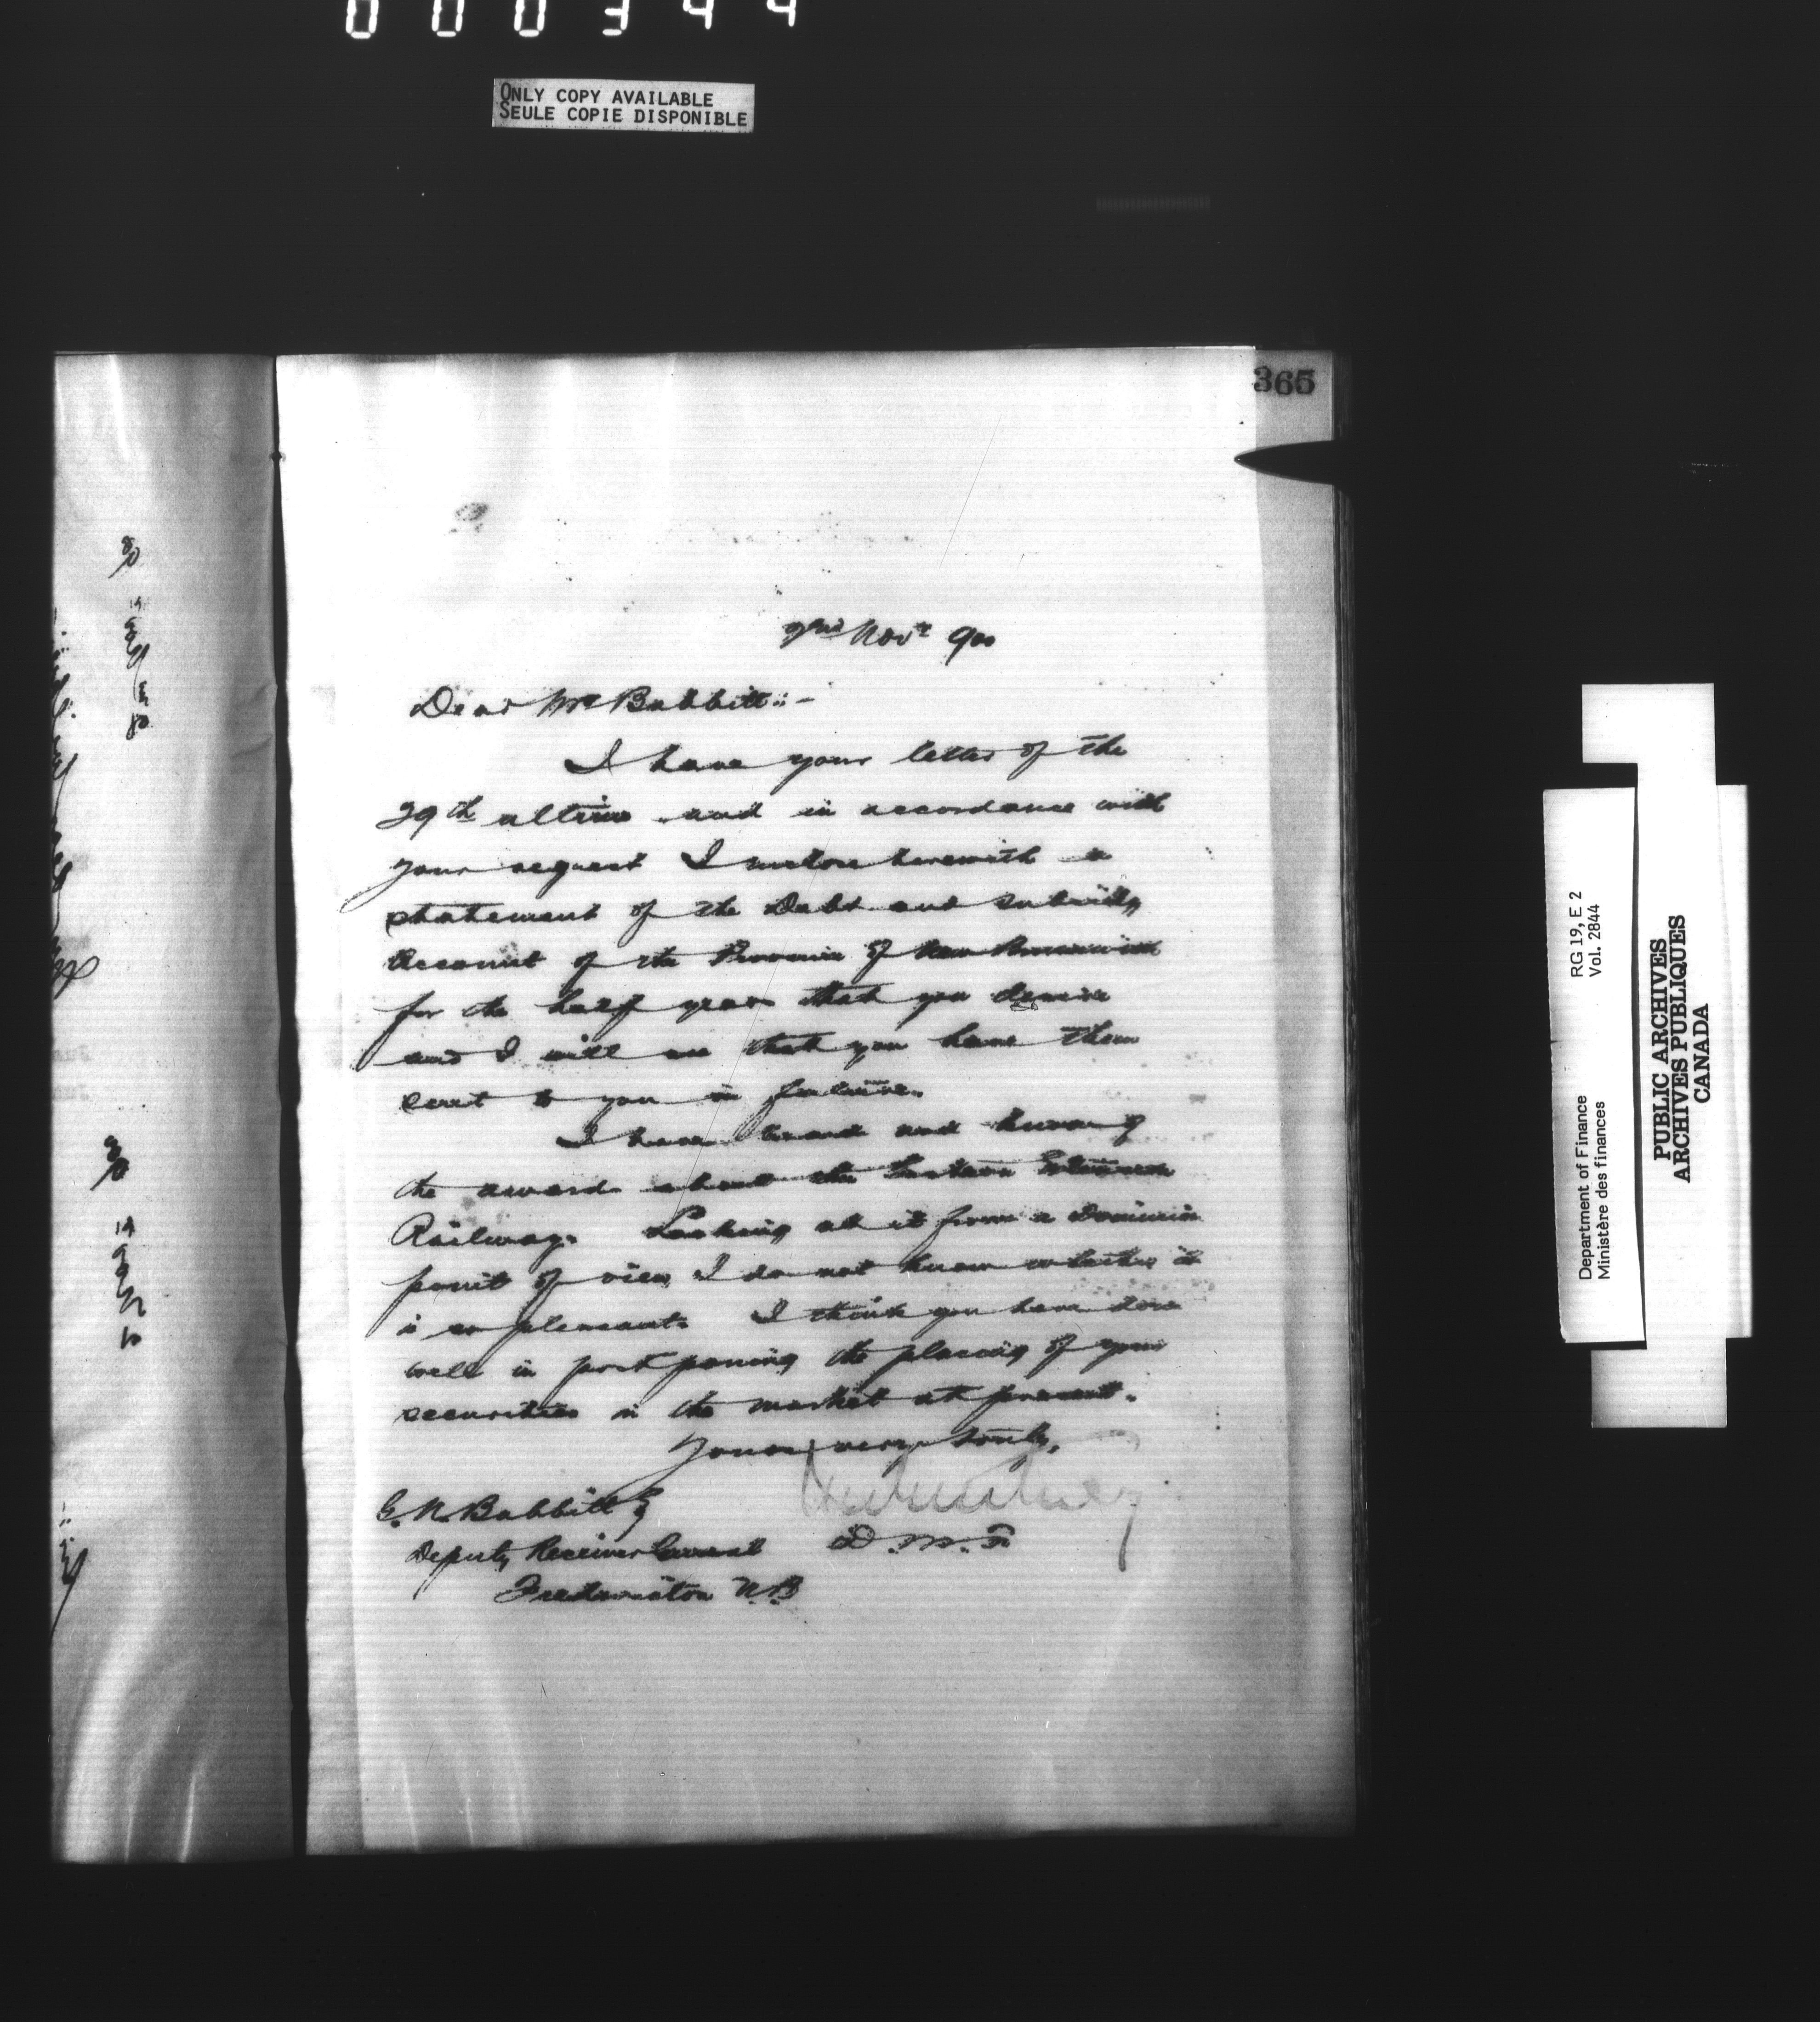 000344
ONLY COPY AVAILABLE
SEULE COPIE DISPONIBLE
365
2nd Novr 900
Dear Mr Babbitt:-
I have your letter of the
29th ultimo and in accordance with
your request I enclose herewith a
statement of the Debt and Subsidy
Account of the Province of New Brunswick
for the half year that you desire
and I will see that you have them
sent to you in future.
I have heard and know of
the award about the Eastern Extension
Railway. Looking at it from a Dominion
point of view I do not know whether it
is so pleasant. I think you have done
well in postponing the placing of your
securities on the market at present.
Yours very truly,
D.M.F
G. N. Babbitt Esq
Deputy Receiver General
Fredericton N.B
Department of Finance RG 19, E 2
Ministère des finances Vol. 2844
PUBLIC ARCHIVES
ARCHIVES PUBLIQUES
CANADA